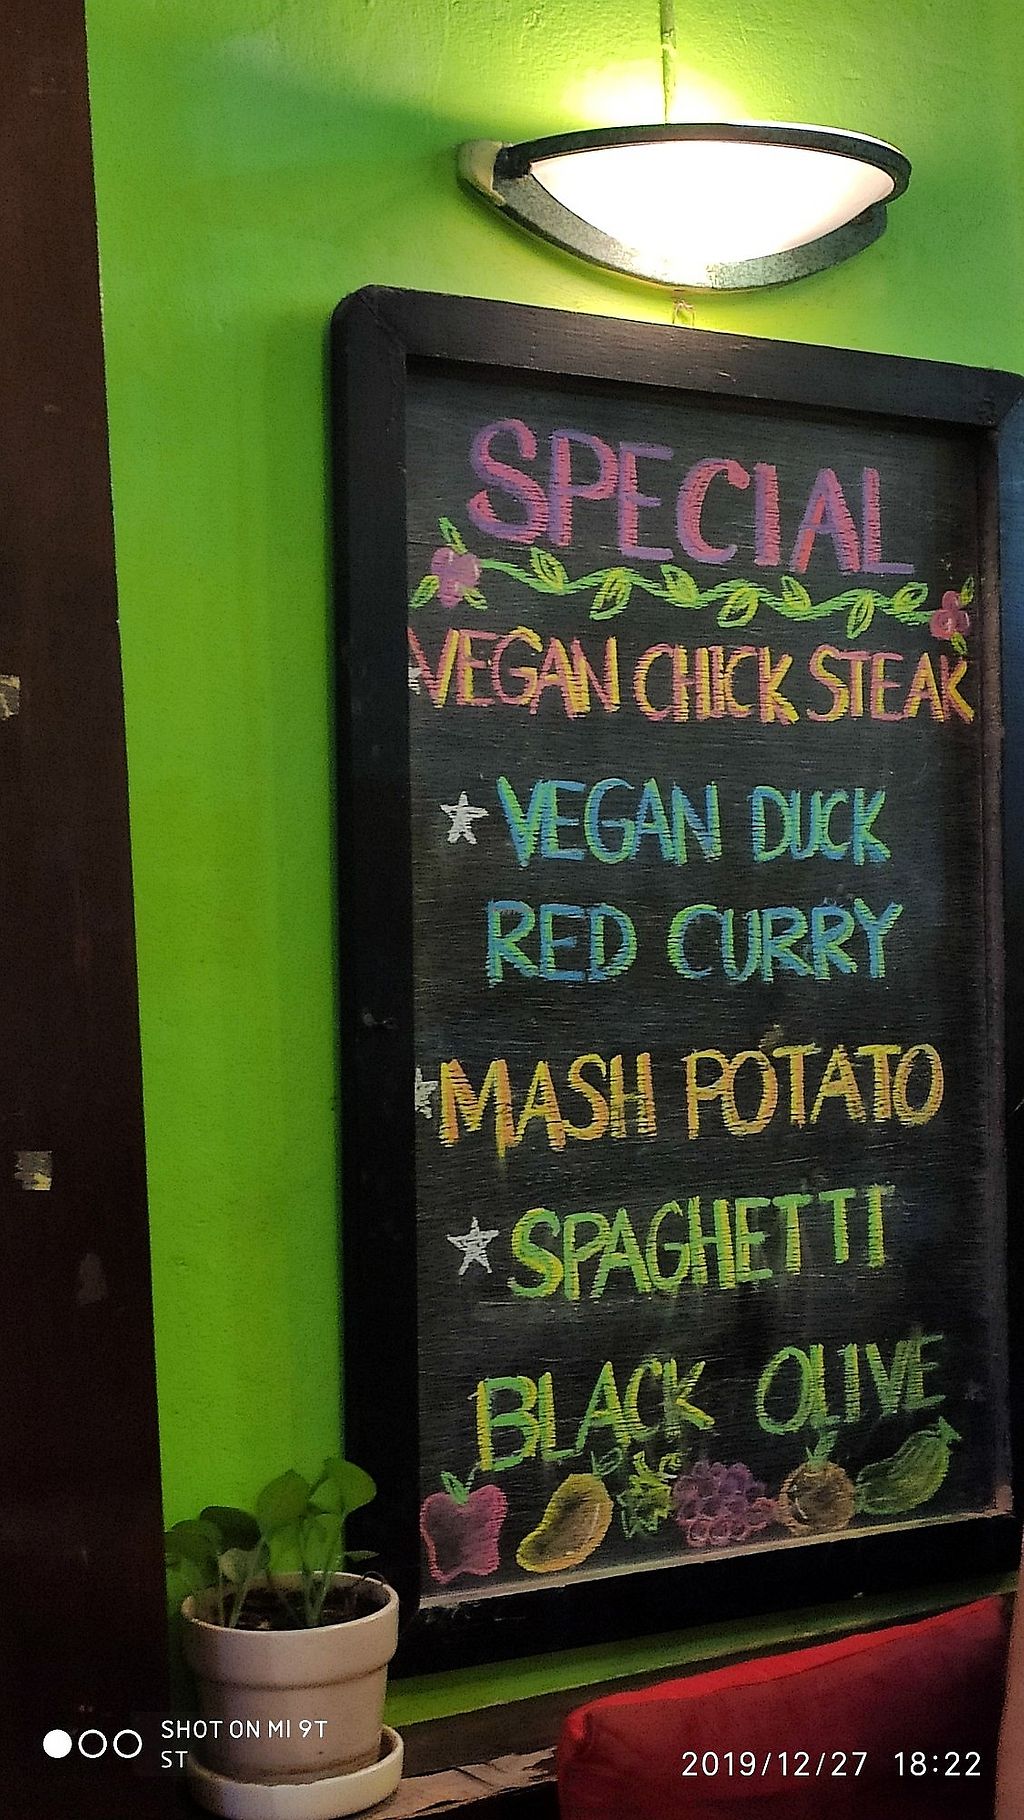 SPECIAL
VEGAN CHICK STEAK
VEGAN DUCK
RED CURRY
MASH POTATO
SPAGHETTI
BLACK OLIVE
SHOT ON MI 9T
ST
2019/12/27 18:22